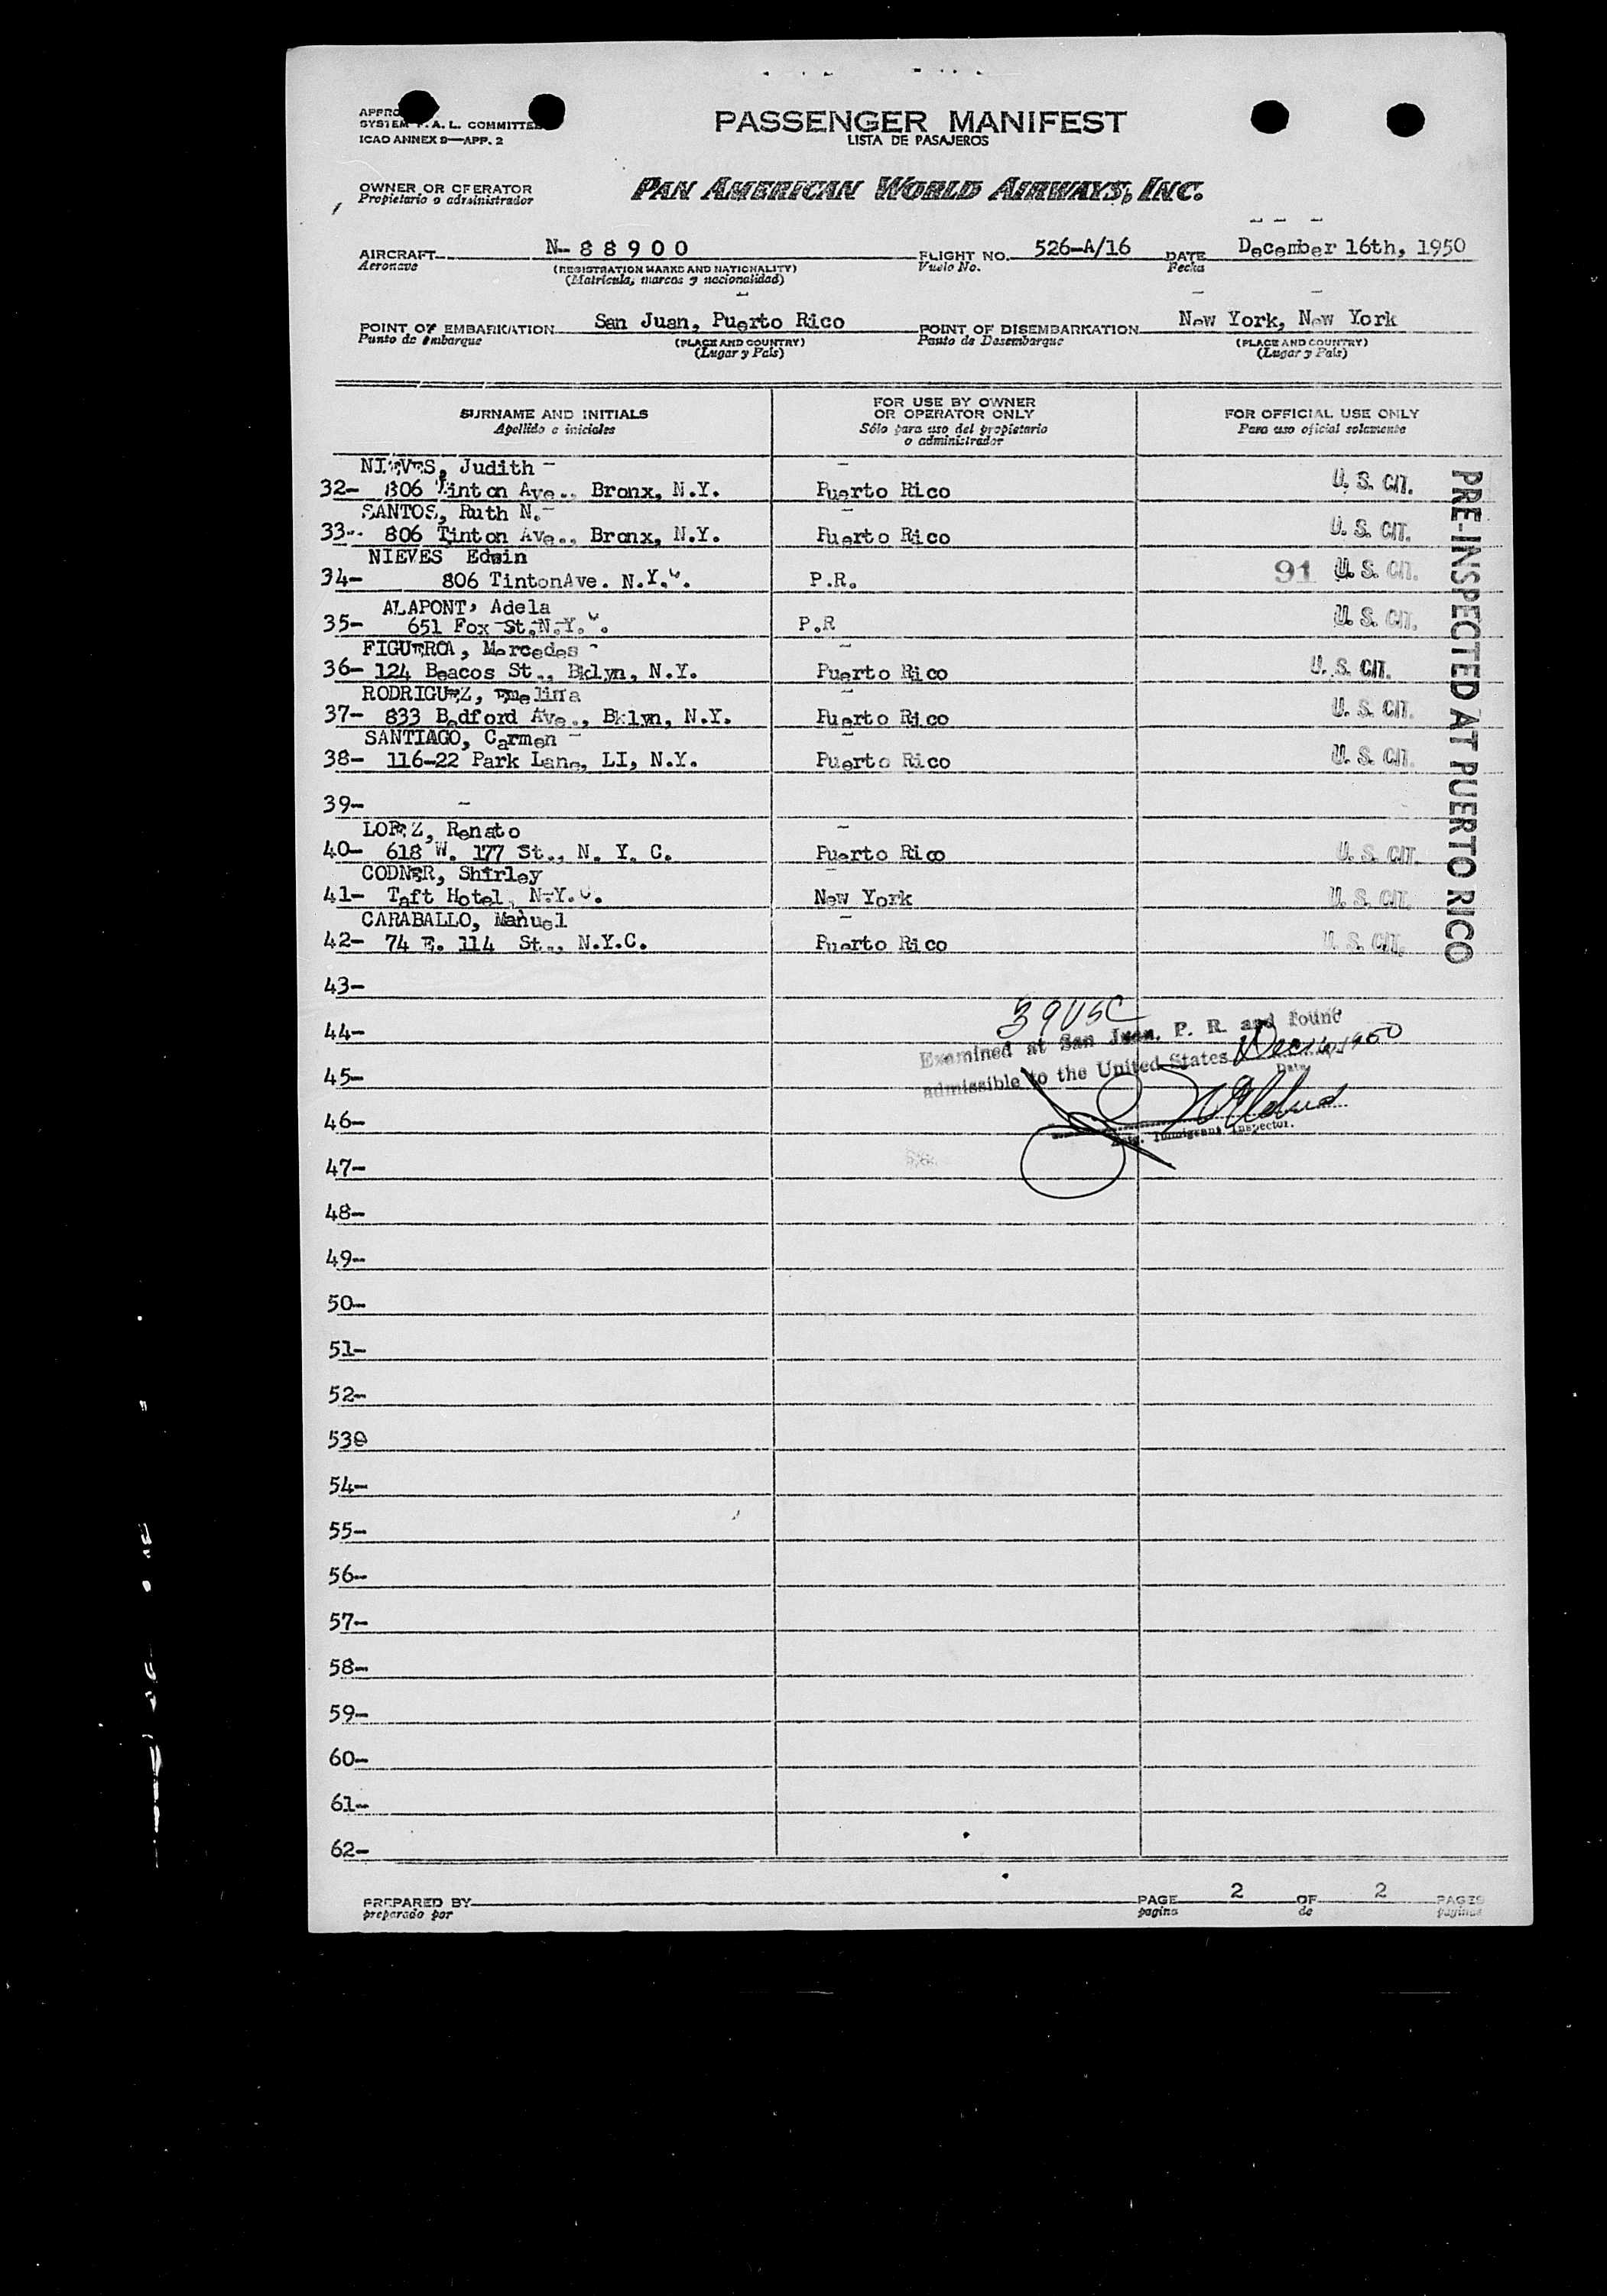 SYSTEM F.A.L. COMMITTEE
ICAO ANNEX 9—APP. 2
PASSENGER MANIFEST
LISTA DE PASAJEROS
OWNER OR OPERATOR
Propietario o administrador
PAN AMERICAN WORLD AIRWAYS, INC.
AIRCRAFT N-88900 FLIGHT NO. 526-A/16 DATE December 16th, 1950
Aeronave (REGISTRATION MARKS AND NATIONALITY) Vuelo No. Fecha
(Matrícula, marcas y nacionalidad)
POINT OF EMBARKATION San Juan, Puerto Rico POINT OF DISEMBARKATION New York, New York
Punto de embarque (PLACE AND COUNTRY) Punto de Desembarque (PLACE AND COUNTRY)
(Lugar y País) (Lugar y País)
SURNAME AND INITIALS
Apellido e iniciales
FOR USE BY OWNER
OR OPERATOR ONLY
Sólo para uso del propietario
o administrador
FOR OFFICIAL USE ONLY
Para uso oficial solamente
NIEVES, Judith
32- 806 Tinton Ave., Bronx, N.Y. Puerto Rico U. S. CIT.
SANTOS, Ruth N.
33- 806 Tinton Ave., Bronx, N.Y. Puerto Rico U. S. CIT.
NIEVES Edwin
34- 806 TintonAve. N.Y.C. P.R. 91 U. S. CIT.
ALAPONT, Adela
35- 651 Fox St.N.Y.C. P.R U. S. CIT.
FIGUEROA, Mercedes
36- 124 Beacos St., Bklyn, N.Y. Puerto Rico U. S. CIT.
RODRIGUEZ, Emelina
37- 833 Bedford Ave., Bklyn, N.Y. Puerto Rico U. S. CIT.
SANTIAGO, Carmen
38- 116-22 Park Lane, LI, N.Y. Puerto Rico U. S. CIT.
39-
LOPEZ, Renato
40- 618 W. 177 St., N. Y. C. Puerto Rico U. S. CIT.
CODNER, Shirley
41- Taft Hotel, N.Y.C. New York U. S. CIT.
CARABALLO, Manuel
42- 74 E. 114 St., N.Y.C. Puerto Rico U. S. CIT.
PRE-INSPECTED AT PUERTO RICO
43-
39 USC
44-
Examined at San Juan, P. R. and found
admissible to the United States Dec 16, 1950
Date
45-
46-
Immigrant Inspector.
47-
48-
49-
50-
51-
52-
53-
54-
55-
56-
57-
58-
59-
60-
61-
62-
PREPARED BY PAGE 2 OF 2 PAGES
preparado por pagina de paginas